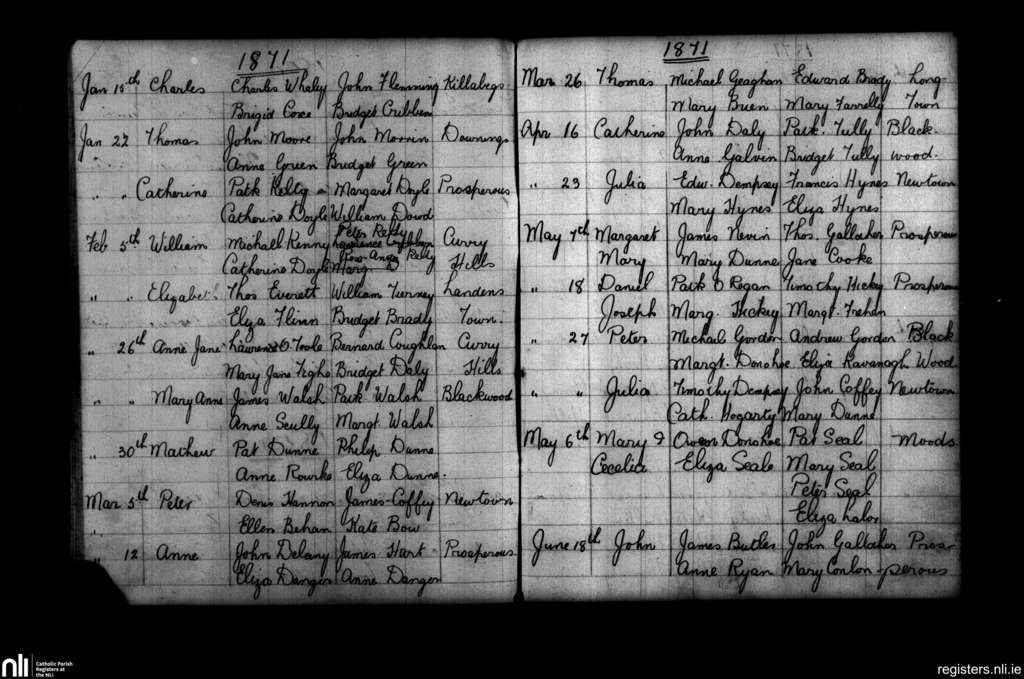 1871
Jan 15th Charles Charles Whaley John Flemming Killabegs
Brigid Coxe Bridget Cribben
Jan 22 Thomas John Moore John Morrin Downings
Anne Green Bridget Green
" " Catherine Patk Kelty Margaret Doyle Prosperous
Catherine Doyle William Dowd
Peter Kelly
Feb 5th William Michall Kenny Curry
Catherine Doyle Marg Kelly Hills
" " Elizabeth Thos Everett William Tierney Landens
Eliza Flinn Bridget Brady Town.
" 26th Anne Jane Laurence O'Toole Bernard Coughlan Curry
Mary Jane Tighe Bridget Daly Hills
" " Mary Anne James Walsh Patk Walsh Blackwood
Anne Scully Margt Walsh
" 30th Mathew Pat Dunne Philip Dunne
Anne Rourke Eliza Dunne.
Mar 5th Peter Denis Hannon James Coffey Newtown
Ellen Behan Kate Bow
" 12 Anne John Delany James Hart Prosperous
Eliza Danger Anne Danger
1871
Mar 26 Thomas Michael Geaghan Edward Brady Long-
Mary Buen Mary Farrelly Town
Apr 16 Catherine John Daly Patk. Tully Black.
Anne Galvin Bridget Tully wood.
" 23 Julia Edw. Dempsey Francis Hynes Newtown
Mary Hynes Eliza Hynes
May 7th Margaret James Nevin Thos. Gallacher Prosperous
Mary Mary Dunne Jane Cooke
" 18 Daniel Patk O Regan Timothy Hickey Prosperous
Joseph Marg. Hickey Margt. Frehan
" 27 Peter Michael Gordon Andrew Gordon Black
Margt. Donohoe Eliza Kavanagh Wood.
" " Julia Timothy Dempsey John Coffey Newtown
Cath. Hogarty Mary Dunne
May 6th Mary & Owen Donohoe Pat Seal Moods
Cecelia Eliza Seale Mary Seal
Peter Seal
Eliza Lalor
June 18th John James Butler John Gallacher Pros-
Anne Ryan Mary Conlon -perous
nli Catholic Parish
Registers at
the NLI
registers.nli.ie